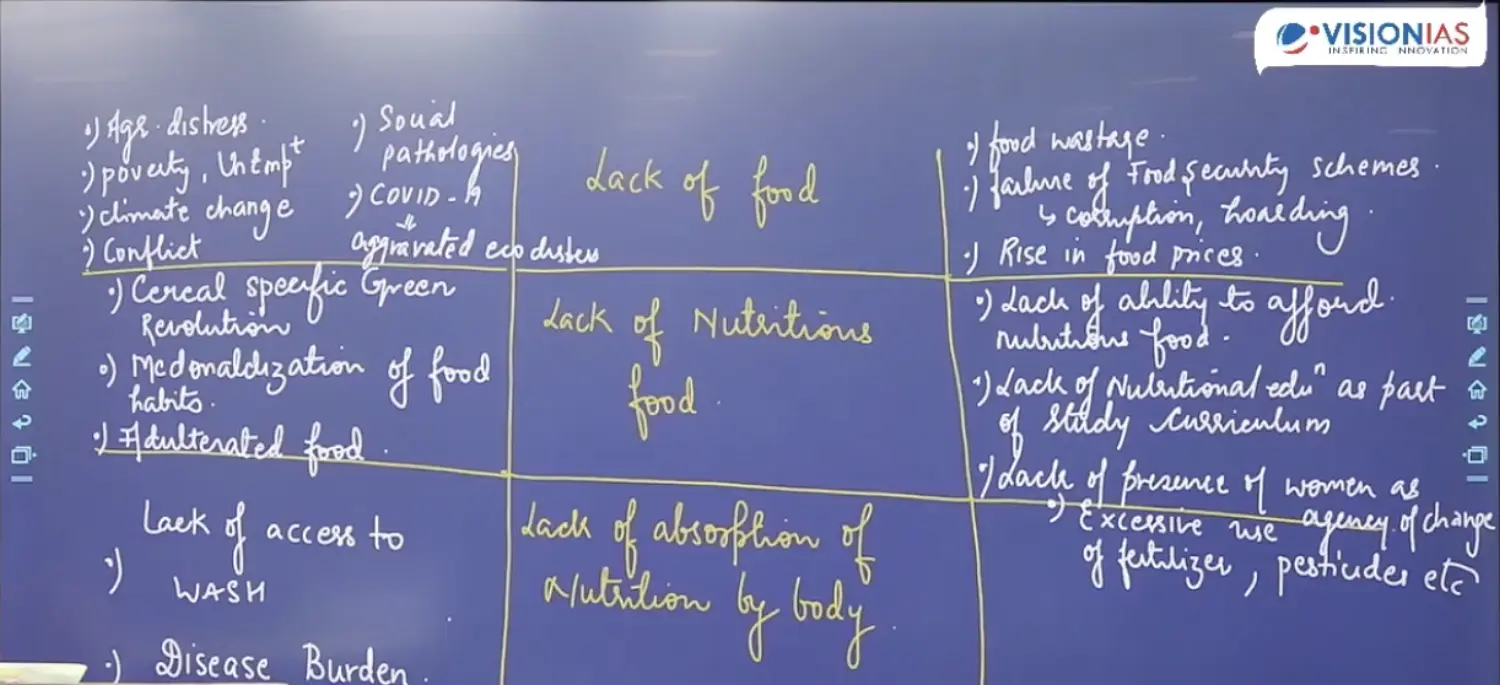 VISIONIAS
INSPIRING INNOVATION
•) Agr. distress.
•) poverty, UnEmpt
•) climate change
•) Conflict
•) Social
pathologies
•) COVID-19
⇓
aggravated eco distress
Lack of food
•) food wastage.
•) failure of Food Security schemes.
↳ corruption, hoarding.
•) Rise in food prices.
•) Cereal specific Green
Revolution
•) Mcdonaldization of food
habits.
•) Adulterated food.
Lack of Nutritious
food.
•) Lack of ability to afford
nutritious food.
•) Lack of Nutritional edun as part
of study curriculum
•) Lack of presence of women as
agency of change
Lack of access to
•) WASH
•) Disease Burden.
Lack of absorption of
Nutrition by body.
•) Excessive use
of fertilizer, pesticides etc